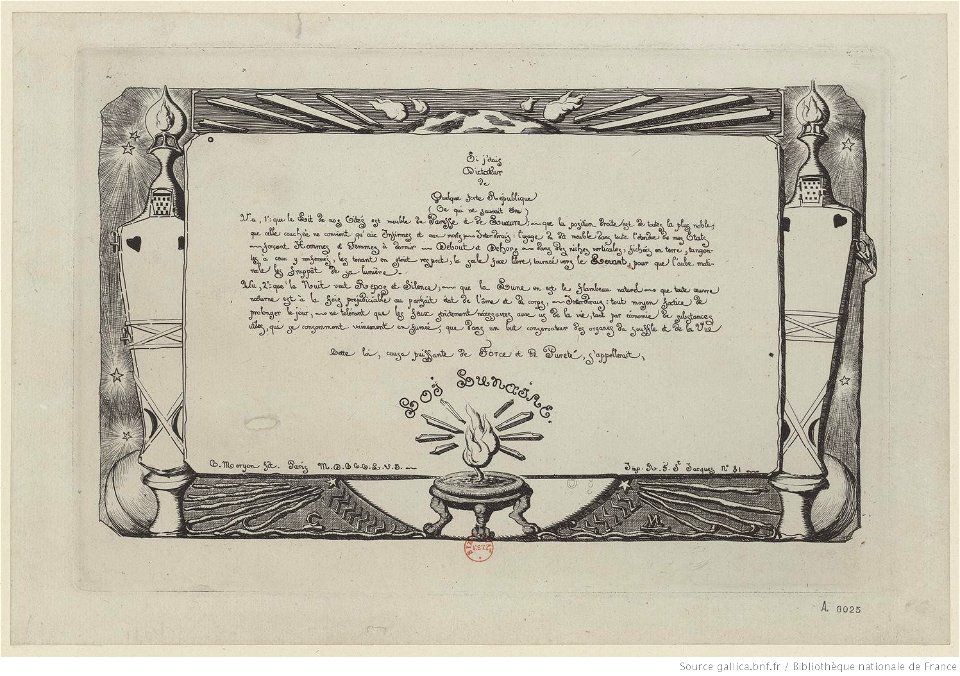 Si j'étais
Dictateur
de
Quelque forte République
(Ce qui ne saurait être)
Vu, 1°: que le Lit de nos Cités est meuble de Paresse et de Luxure; que la position droite est de toutes la plus noble;
que celle couchée ne convient qu'aux Infirmes et aux morts, Interdirais l'usage de ce meuble dans toute l'étendue de mes Etats
forçant Hommes et Femmes à dormir Debout et Dehors dans des niches verticales, fichées en terre,
à ceux y renfermés, les tenant en étroit respect; la seule face libre, tournée vers le Levant, pour que l'aube
les frappât de sa lumière.
Vu, 2°: que la Nuit veut Repos et Silence, que la Lune en est le flambeau naturel que toute œuvre
nocturne est à la fois préjudiciable au parfait état de l'âme et du corps, Interdirais: tout moyen factice de
prolonger le jour, ne tolérant que les feux strictement nécessaires aux us de la vie, tant par économie de substances
utiles, qui se consomment vainement en fumée, que dans un but conservateur des organes du souffle et de la Vue
Cette loi, cause puissante de Force et de Pureté, s'appellerait,
Loi Lunaire.
C. Meryon fct. Paris M.D.C.C.C.L.V.I.
Imp. R. St. Jacques N° 81
C M
A. 8025
Source gallica.bnf.fr / Bibliothèque nationale de France